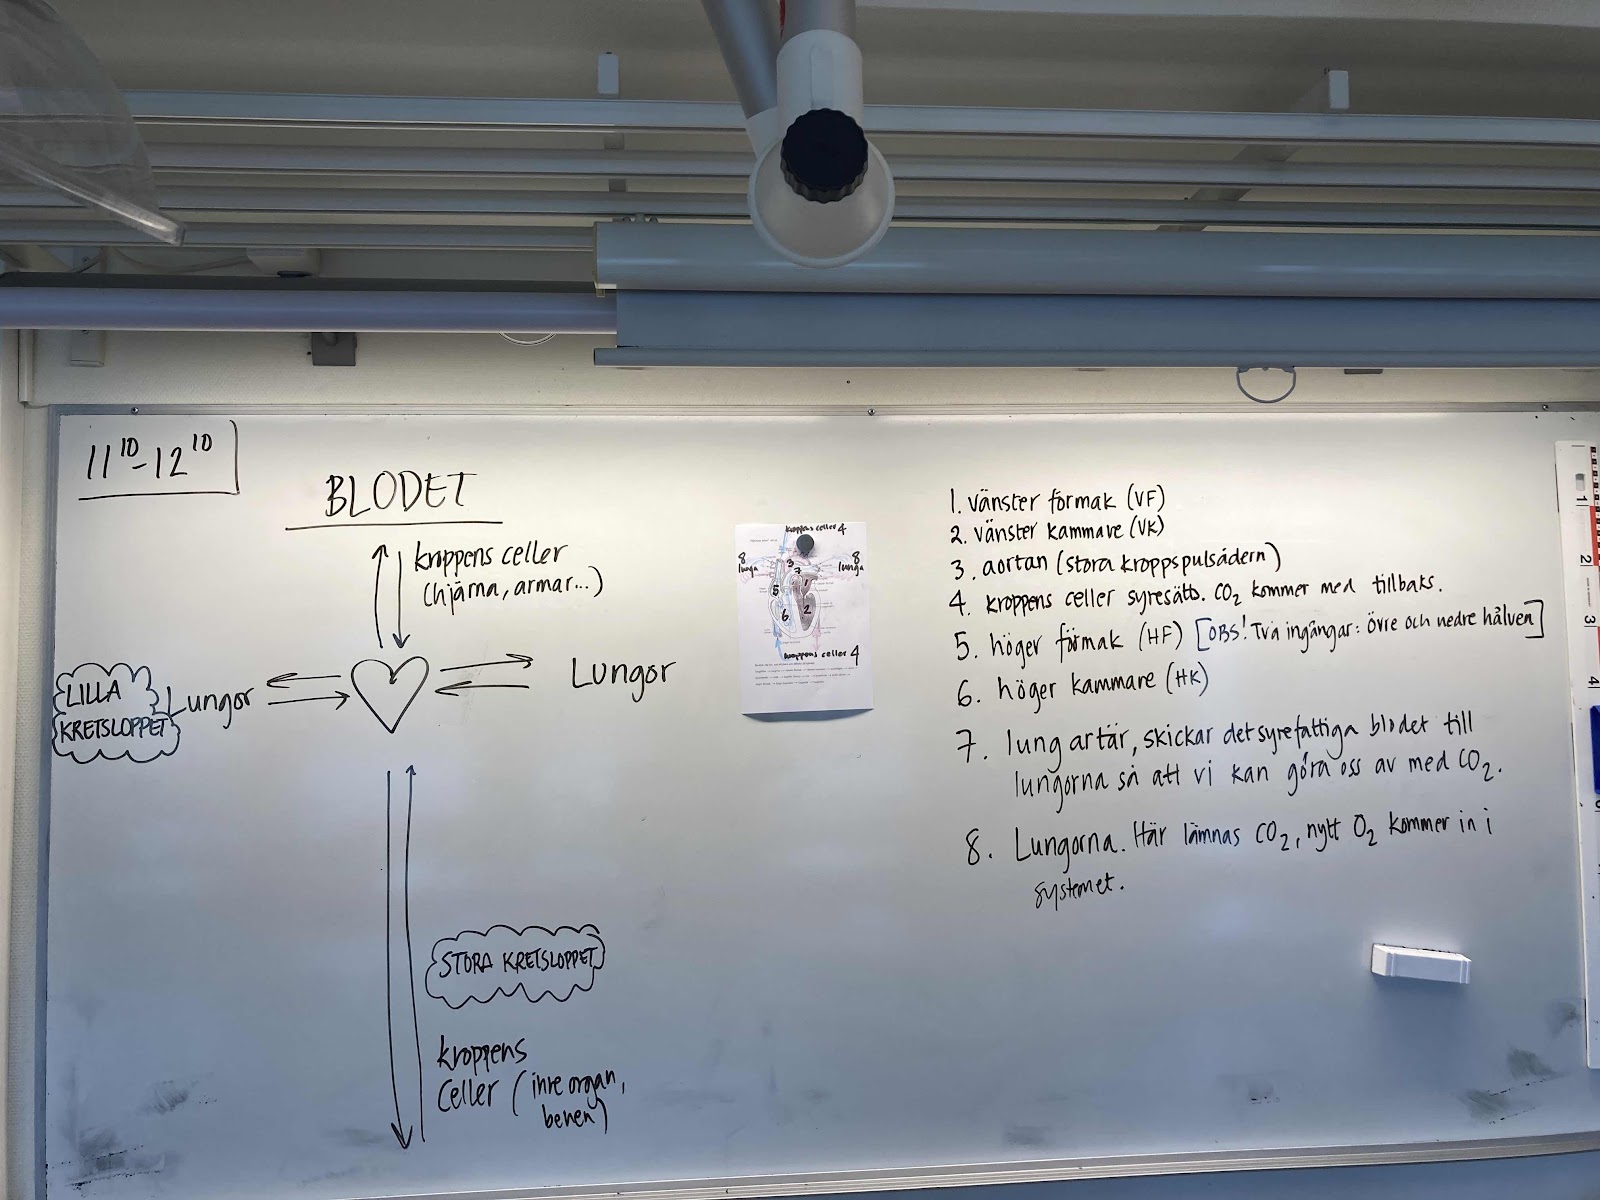 11¹⁰-12¹⁰
BLODET
kroppens celler
(hjärna, armar...)
LILLA
KRETSLOPPET
Lungor
Lungor
STORA KRETSLOPPET
kroppens
celler (inre organ,
benen)
kroppens celler 4
8
lunga
8
lunga
3
7
1
5
6
2
kroppens celler 4
1. vänster förmak (VF)
2. vänster kammare (VK)
3. aortan (stora kroppspulsådern)
4. kroppens celler syresätts. CO₂ kommer med tillbaks.
5. höger förmak (HF) [OBS! Två ingångar: övre och nedre hålven]
6. höger kammare (HK)
7. lungartär, skickar det syrefattiga blodet till
lungorna så att vi kan göra oss av med CO₂.
8. Lungorna. Här lämnas CO₂, nytt O₂ kommer in i
systemet.
1
2
3
4